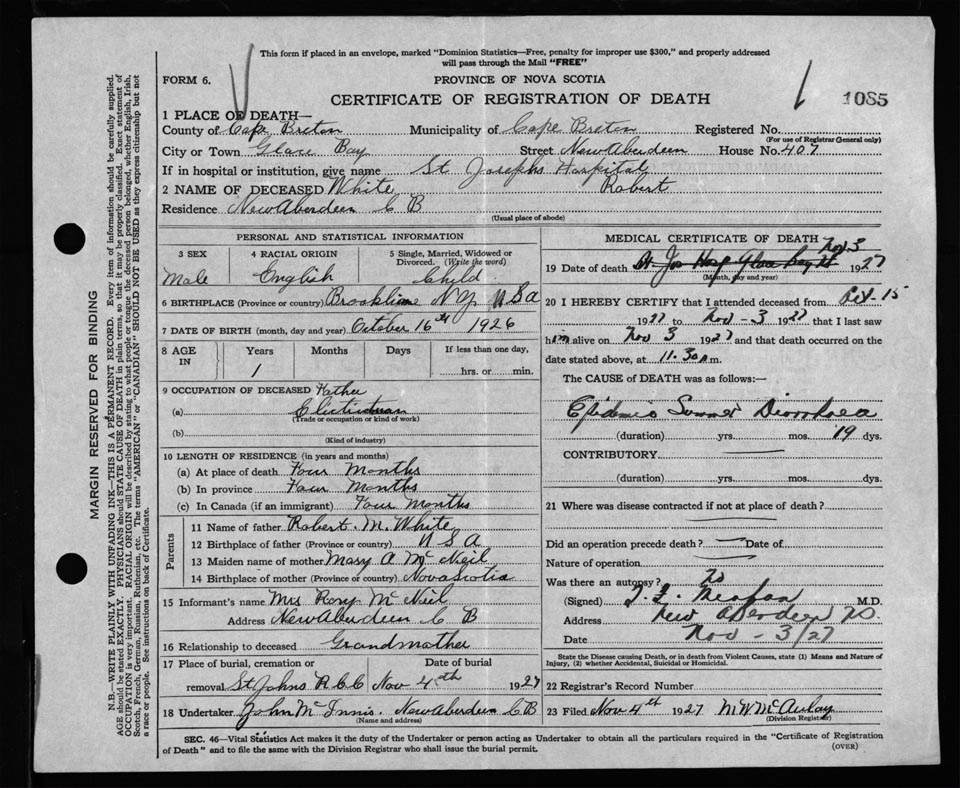 This form if placed in an envelope, marked "Dominion Statistics—Free, penalty for improper use $300," and properly addressed
will pass through the Mail "FREE"
FORM 6.
PROVINCE OF NOVA SCOTIA
CERTIFICATE OF REGISTRATION OF DEATH
1085
1 PLACE OF DEATH—
County of Cape Breton Municipality of Cape Breton Registered No.
(For use of Registrar General only)
City or Town Glace Bay Street New Aberdeen House No. 407
If in hospital or institution, give name St Josephs Hospital
2 NAME OF DECEASED White Robert
Residence New Aberdeen C B
(Usual place of abode)
PERSONAL AND STATISTICAL INFORMATION
3 SEX Male
4 RACIAL ORIGIN English
5 Single, Married, Widowed or Divorced. (Write the word) Child
6 BIRTHPLACE (Province or country) Brookline N.Y. USA
7 DATE OF BIRTH (month, day and year) October 16th 1926
8 AGE IN Years Months Days If less than one day,
1 hrs. or min.
9 OCCUPATION OF DECEASED Father
(a)
(Trade or occupation or kind of work)
(b)
(Kind of industry)
10 LENGTH OF RESIDENCE (in years and months)
(a) At place of death Four Months
(b) In province Four Months
(c) In Canada (if an immigrant) Four Months
Parents
11 Name of father Robert M. White
12 Birthplace of father (Province or country) U S A
13 Maiden name of mother Mary A McNeil
14 Birthplace of mother (Province or country) Nova Scotia
15 Informant's name Mrs Rory McNeil
Address New Aberdeen C B
16 Relationship to deceased Grandmother
17 Place of burial, cremation or removal St Johns R C C
Date of burial Nov 4th 1927
18 Undertaker John McInnis. New Aberdeen C B
(Name and address)
MEDICAL CERTIFICATE OF DEATH
19 Date of death St Jos Hosp Glace Bay Nov. 3 1927
(Month, day and year)
20 I HEREBY CERTIFY that I attended deceased from Oct - 15
1927 to Nov - 3 1927 that I last saw
him alive on Nov 3 1927 and that death occurred on the
date stated above, at 11.30 m.
The CAUSE OF DEATH was as follows:—
Epidemic Summer Diorrhoea
(duration) yrs. mos. 19 dys.
CONTRIBUTORY
(duration) yrs. mos. dys.
21 Where was disease contracted if not at place of death?
Did an operation precede death? Date of
Nature of operation
Was there an autopsy? No
(Signed) M.D.
Address New Aberdeen
Date Nov - 3/27
State the Disease Causing Death, or in death from Violent Causes, state (1) Means and Nature of
Injury, (2) whether Accidental, Suicidal or Homicidal.
22 Registrar's Record Number
23 Filed Nov 4th 1927 M W McAulay
(Division Registrar)
SEC. 46—Vital Statistics Act makes it the duty of the Undertaker or person acting as Undertaker to obtain all the particulars required in the "Certificate of Registration
of Death" and to file the same with the Division Registrar who shall issue the burial permit.
(OVER)
MARGIN RESERVED FOR BINDING
N.B.—WRITE PLAINLY WITH UNFADING INK—THIS IS A PERMANENT RECORD. Every item of information should be carefully supplied.
AGE should be stated EXACTLY. PHYSICIANS should STATE CAUSE OF DEATH in plain terms, so that it may be properly classified. Exact statement of
OCCUPATION is very important. RACIAL ORIGIN will be described by stating to what people or tongue the deceased person belonged, whether English, Irish,
Scotch, French, German, Russian, Ruthenian, etc. The terms "AMERICAN" or "CANADIAN" SHOULD NOT BE USED as they express citizenship but not
a race or people. See instructions on back of Certificate.